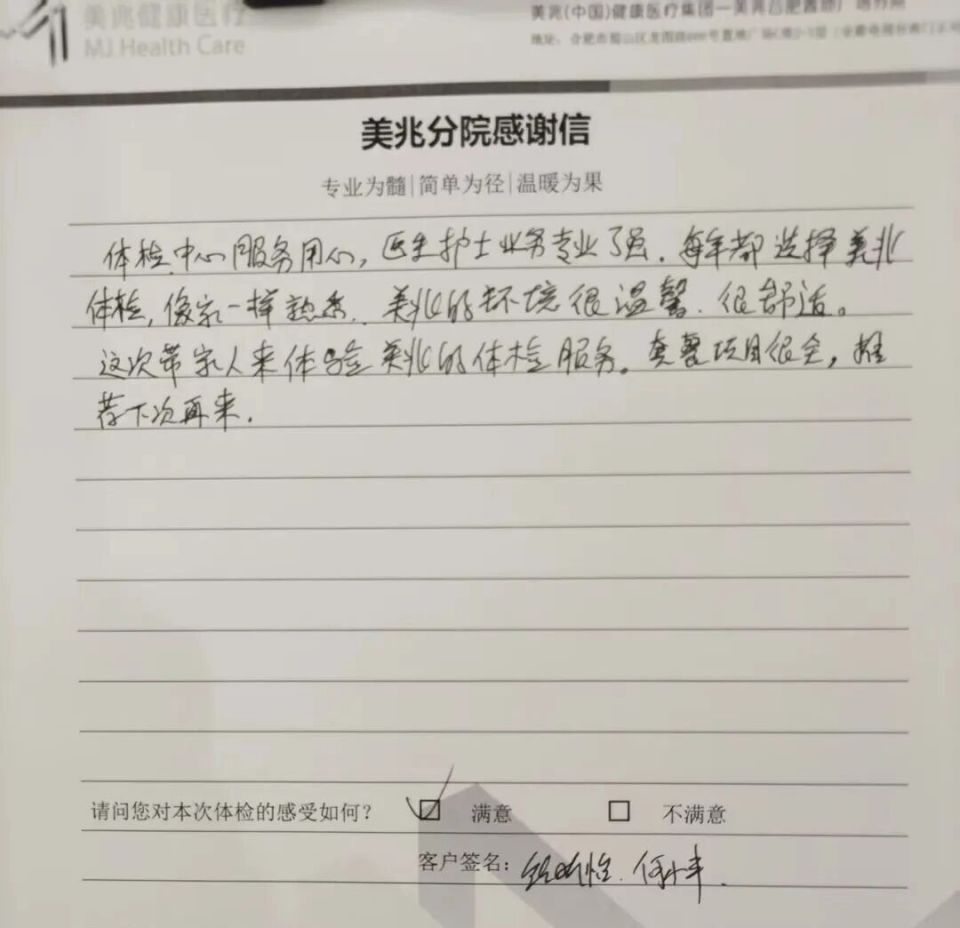 美兆健康医疗
MJ Health Care
美兆(中国)健康医疗集团一美兆合肥鑫
地址:合肥市蜀山区龙图路
美兆分院感谢信
专业为髓|简单为径|温暖为果
体检中心服务用心,医生护士业务专业了强.每年都选择美兆
体检,像家一样熟悉.美兆的环境很温馨.很舒适。
这次带家人来体验美兆的体检服务。套餐项目很全,推
荐下次再来.
请问您对本次体检的感受如何? 满意 不满意
客户签名: